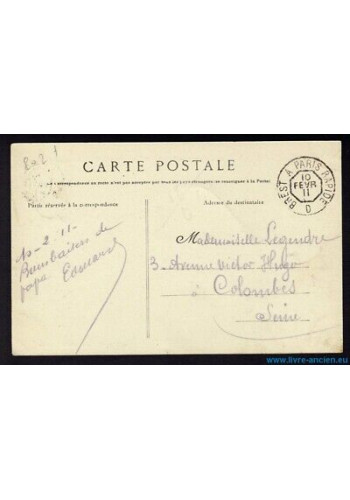 802
CARTE POSTALE
La Correspondance au recto n'est pas acceptée par tous les pays étrangers
BREST A PARIS RAPIDE
10
FEVR
11
D
Partie réservée à la correspondance
Adresse du destinataire
10-2-11-
Bons baisers de
papa Edouard
Mademoiselle Legendre
3. Avenue Victor Hugo
à
Colombes
Seine
www.livre-ancien.eu